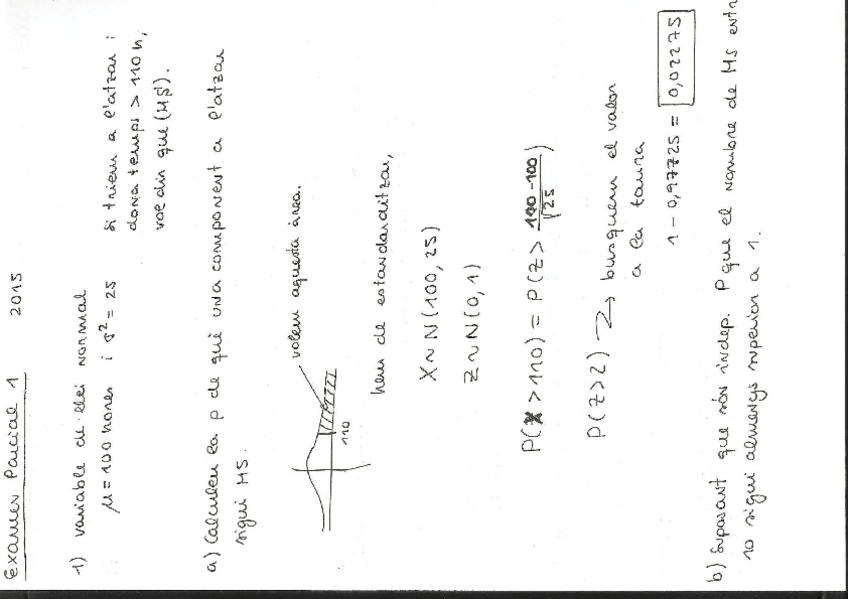 Examen Parcial 1 2015
1) variable de llei normal
μ = 100 hores i σ² = 25
si triem a l'atzar i
dona temps > 110 h,
vol dir que (MS).
a) Calculeu la p de què una component a l'atzar
sigui MS.
volem aquesta àrea.
110
hem de estandarditzar,
X ~ N(100, 25)
Z ~ N(0, 1)
P(X > 110) = P(Z > 110 - 100 / √25)
P(Z > 2) → busquem el valor
a la taula
1 - 0,97725 = 0,02275
b) Suposant que són indep. P que el nombre de MS entre
10 sigui almenys superior a 1.